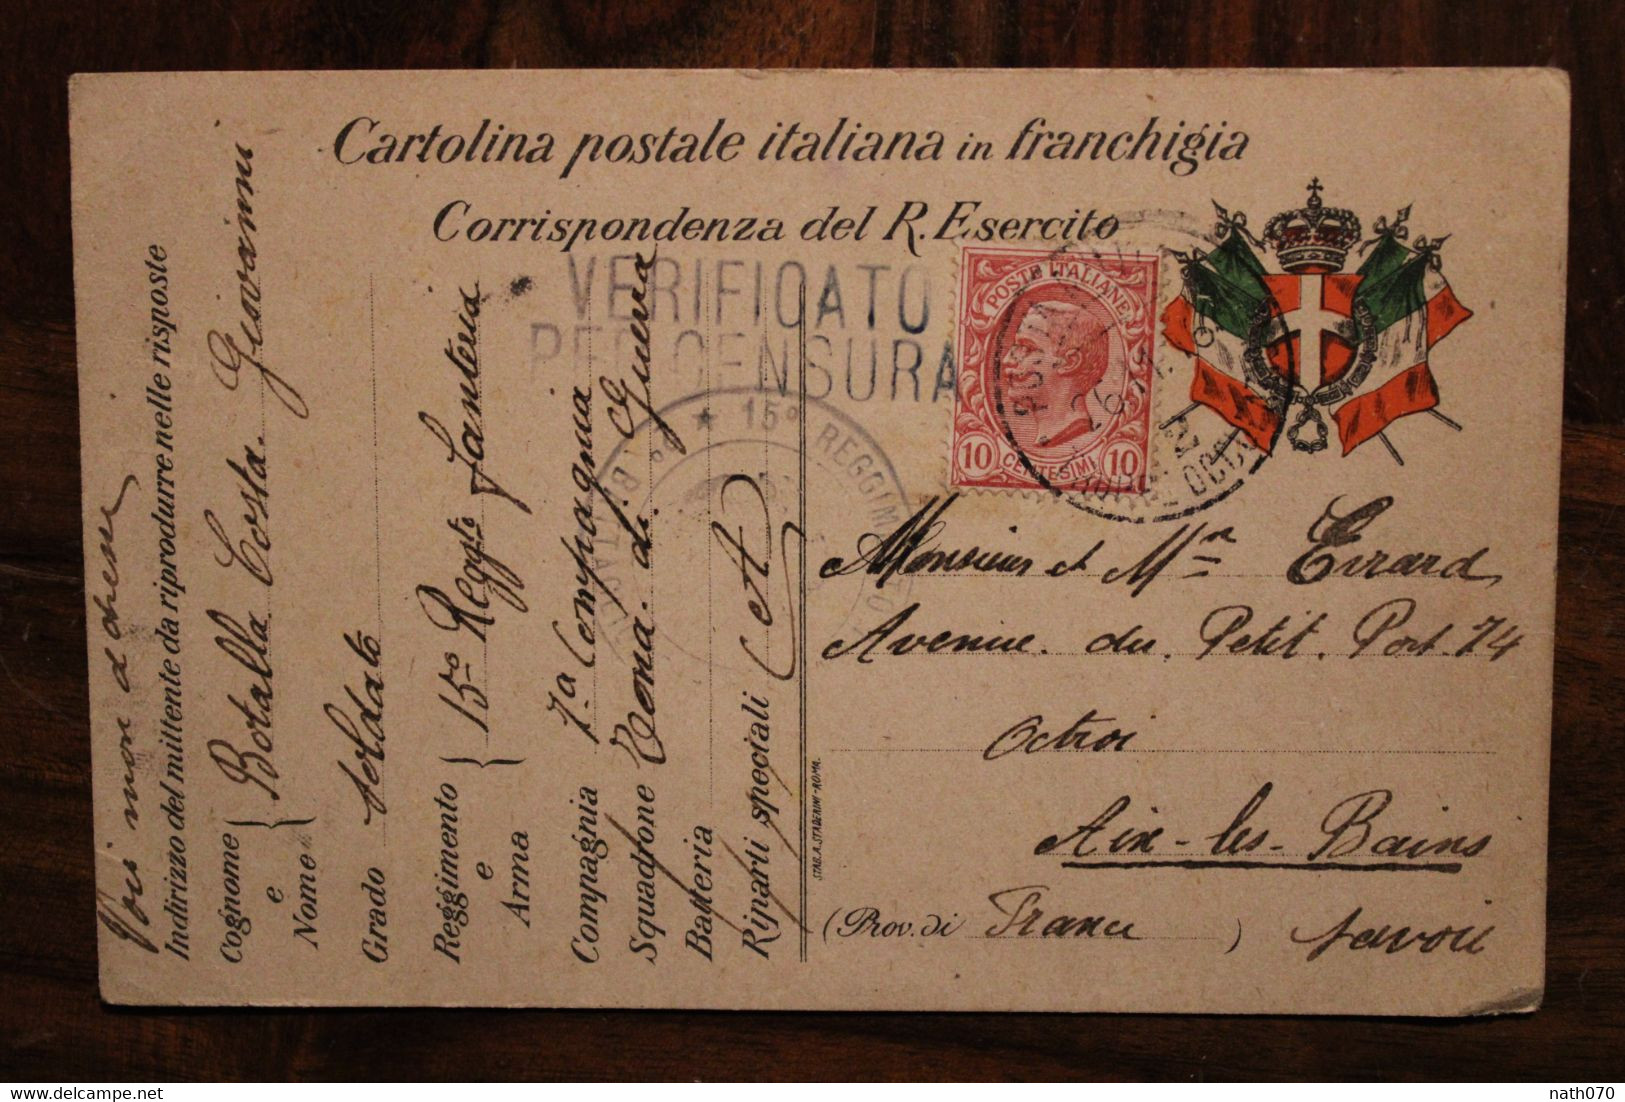 Cartolina postale italiana in franchigia
Corrispondenza del R. Esercito
VERIFICATO
PER CENSURA
POSTE ITALIANE
10 CENTESIMI 10
15° REGGIM
Voir mon adresse
Indirizzo del mittente da riprodurre nelle risposte
Cognome e Nome { Botalla Costa. Giovanni
Grado soldato
Reggimento e Arma { 15° Reggto fanteria
Compagnia 7.a Compagnia
Squadrone Zona. di. Guerra
Batteria
Riparti speciali (A)
STAB. A. STADERINI - ROMA.
Monsieur et Mme Errard
Avenue. du. Petit. Port. 74
Octroi
Aix-les-Bains
(Prov. di France) Savoie
nath070